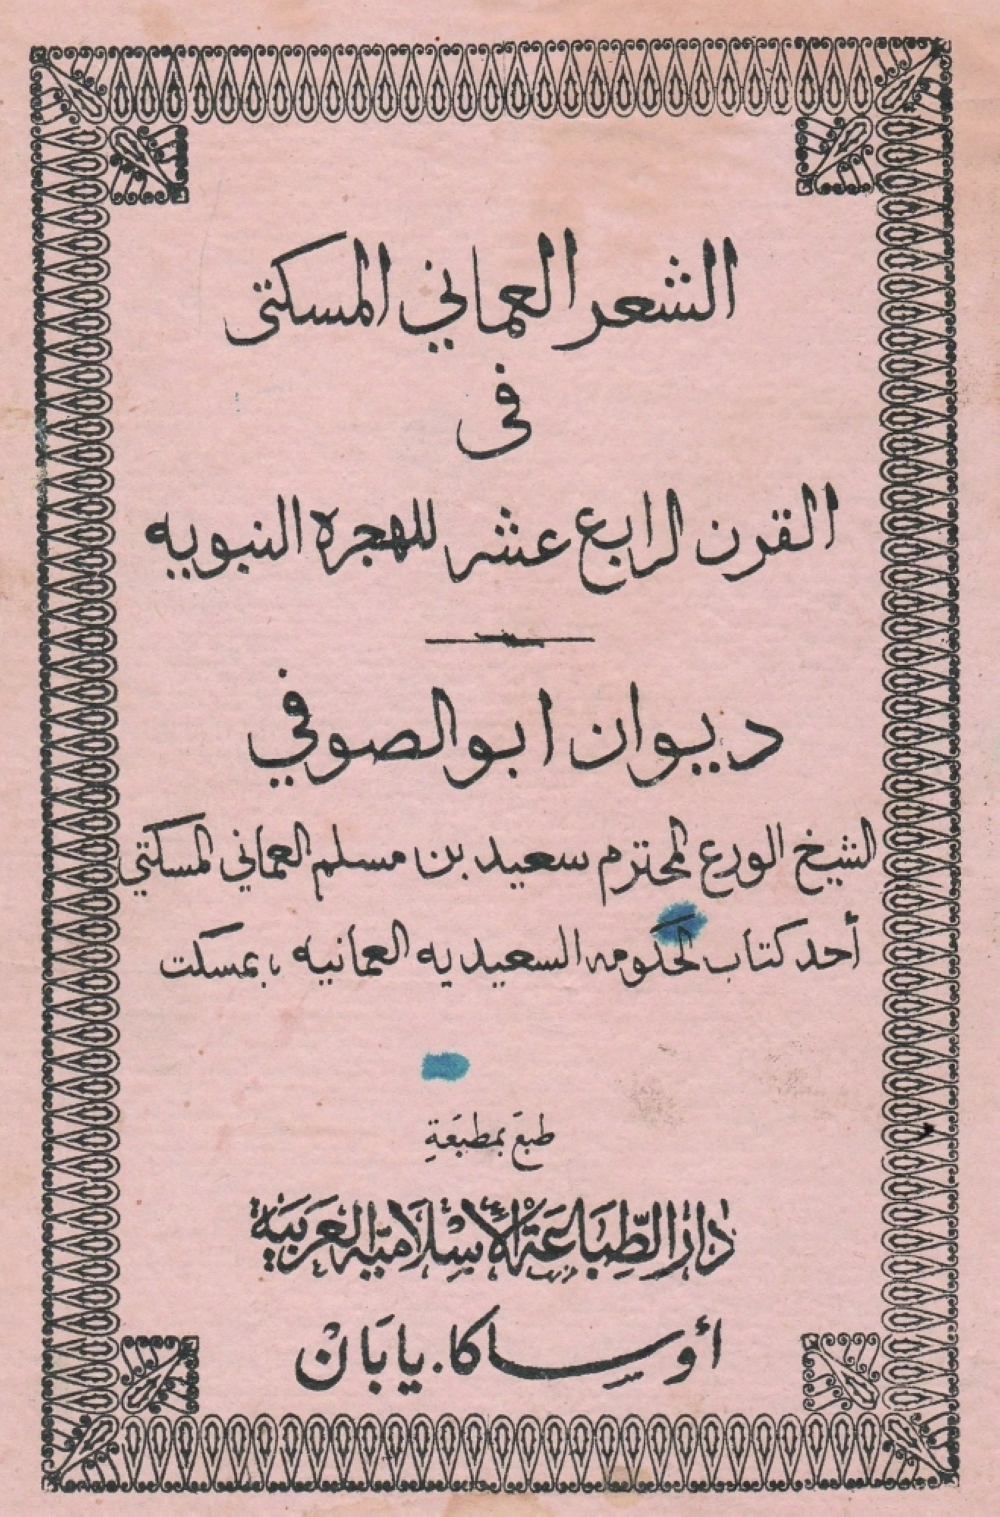 الشعر العماني المسكتى
فى
القرن الرابع عشر للهجره النبويه
ديوان ابو الصوفي
الشيخ الورع المحترم سعيد بن مسلم العماني المسكتي
أحد كتاب الحكومه السعيديه العمانيه ، بمسكت
طبعَ بمطبَعَةِ
دَارُ الطِّبَاعَةْ الأِسْلَامِيَّه العَرَبَيَه
أوسِاكا. يابَانْ